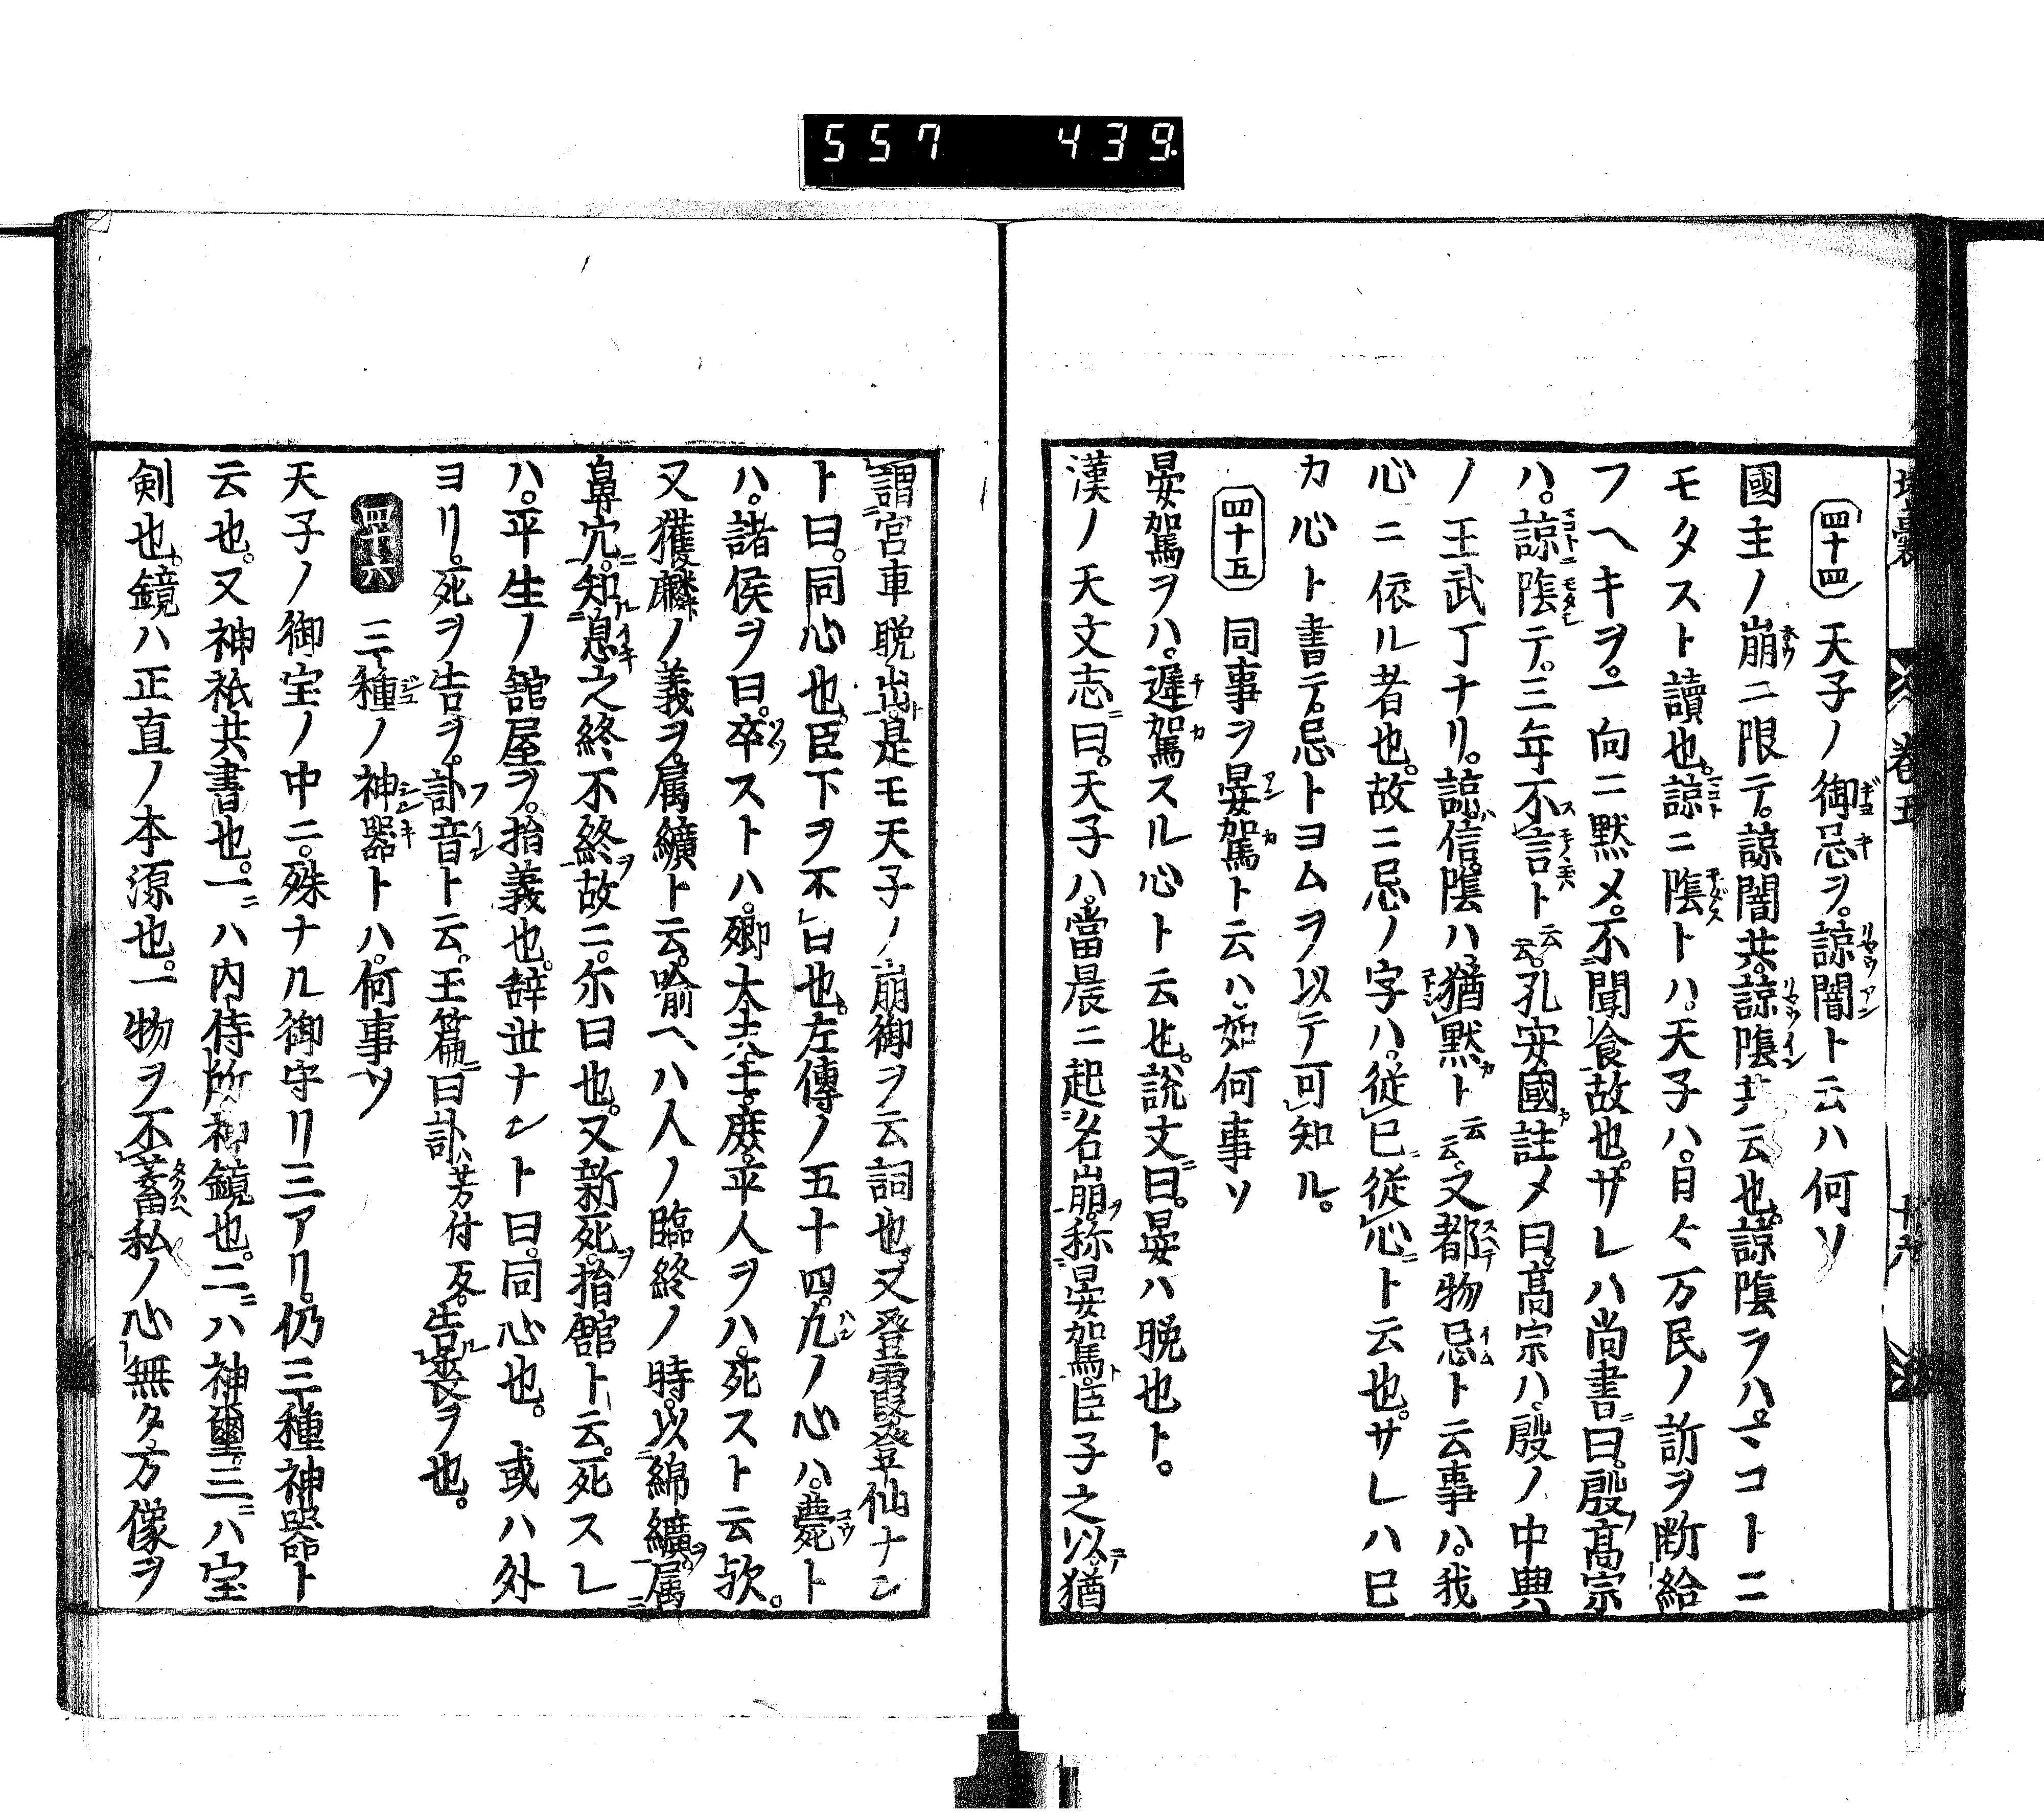 557 439
壒囊 巻五
四十四 天子ノ御忌ヲ。諒闇ト云ハ何ソ
國主ノ崩ニ限テ。諒闇共。諒陰共云也。諒陰ヲハ。マコトニ
モタスト讀也。諒ニ陰トハ。天子ハ。日々万民ノ訴ヲ断給
フヘキヲ。一向ニ黙メ。不聞食故也。サレハ尚書曰。殷高宗
ハ。諒陰テ。三年不言ト云云。孔安國註メ曰。高宗ハ。殷ノ中興
ノ王武丁ナリ。諒信。陰ハ猶黙ト云云。又都物忌ト云事ハ。我
心ニ依ル者也。故ニ忌ノ字ハ。従己従心ト云也。サレハ己
カ心ト書テ。忌トヨムヲ以テ可知ル。
四十五 同事ヲ晏駕ト云ハ。如何事ソ
晏駕ヲハ。遅駕スル心ト云也。説文曰。晏ハ晩也ト。
漢ノ天文志曰。天子ハ。當晨ニ起。名崩。称晏駕。臣子之以。猶
謂宮車晩出。是モ天子ノ崩御ヲ云詞也。又登霞登仙ナン
ト曰。同心也。臣下ヲ不曰也。左傳ノ五十四。凡ノ心ハ。薨ト
ハ。諸侯ヲ曰。卒ストハ。卿大夫士。庶。平人ヲハ。死スト云欤。
又獲麟ノ義ヲ。属纊ト云。喩ヘハ人ノ臨終ノ時。以綿纊。属
鼻穴。知息之終不終故ニ。尓曰也。又新死。捨舘ト云。死スレ
ハ。平生ノ舘屋ヲ。捨義也。辞世ナント曰。同心也。或ハ外
ヨリ。死ヲ告ヲ。訃音ト云。玉篇曰訃芳付反。告喪ヲ也。
四十六 三種ノ神器トハ。何事ソ
天子ノ御宝ノ中ニ。殊ナル御守リ三アリ。仍三種神器ト
云也。又神祇共書也。一ハ内侍所神鏡也。二ハ神璽。三ハ宝
剣也。鏡ハ正直ノ本源也。一物ヲ不蓄私ノ心無タ。万像ヲ